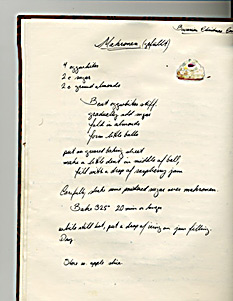 Christmas
Makronen (gefüllt)
4 eggwhites
2 c sugar
2 c ground almonds
Beat eggwhites stiff
gradually add sugar
fold in almonds
form little balls
put on greased baking sheet
make a little dent in middle of ball,
fill with a drop of raspberry jam
Carefully shake some powdered sugar over makronen
Bake 325° 20 min or longer
while still hot, put a drop of icing on jam filling.
Dry
Store w. apple slice